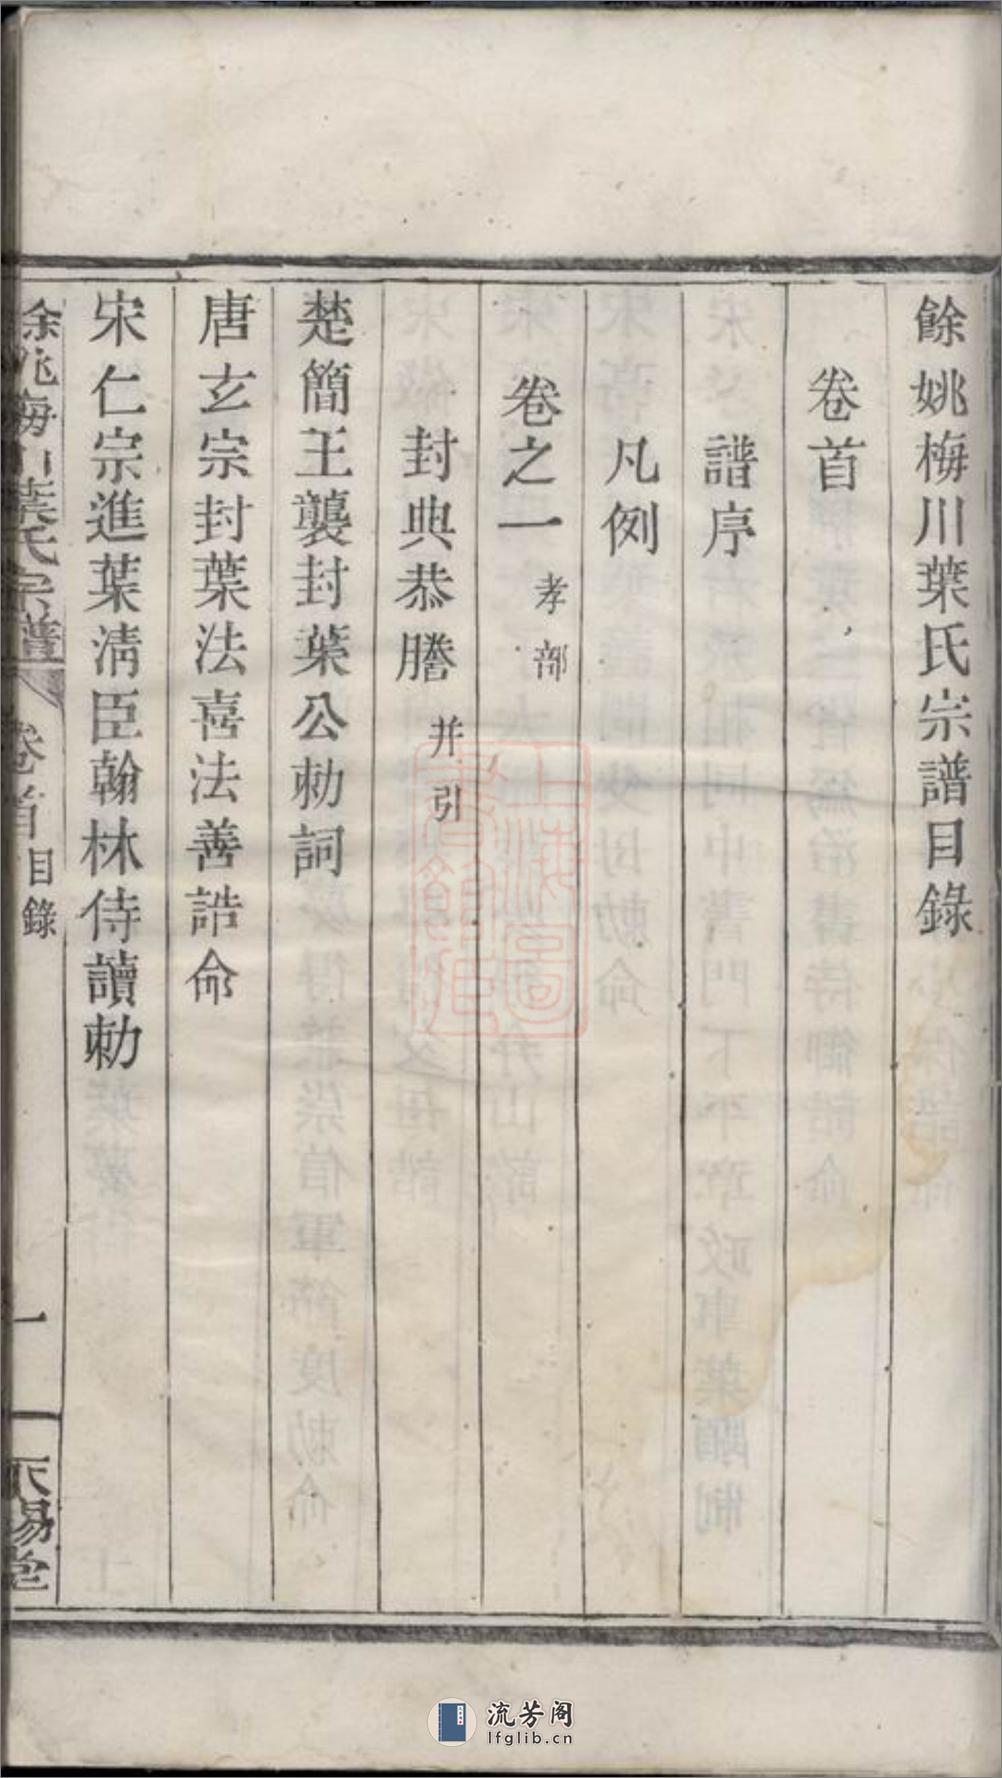 餘姚梅川葉氏宗譜目錄
卷首
譜序
凡例
卷之一 孝部
封典恭謄 并引
楚簡王襲封葉公勅詞
唐玄宗封葉法喜法善誥命
宋仁宗進葉清臣翰林侍讀勅
餘姚梅川葉氏宗譜 卷首 目錄 一 天錫堂
上海圖書館藏
流芳阁
lfglib.cn